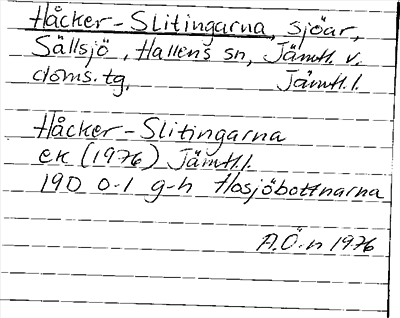 Håcker-Slitingarna, sjöar,
Sällsjö, Hallens sn, Jämtl. v.
doms.tg, Jämtl.l.
Håcker-Slitingarna
ek (1976) Jämtl.l.
19D 0-1 g-h Hosjöbottnarna
A.Ö-n 1976